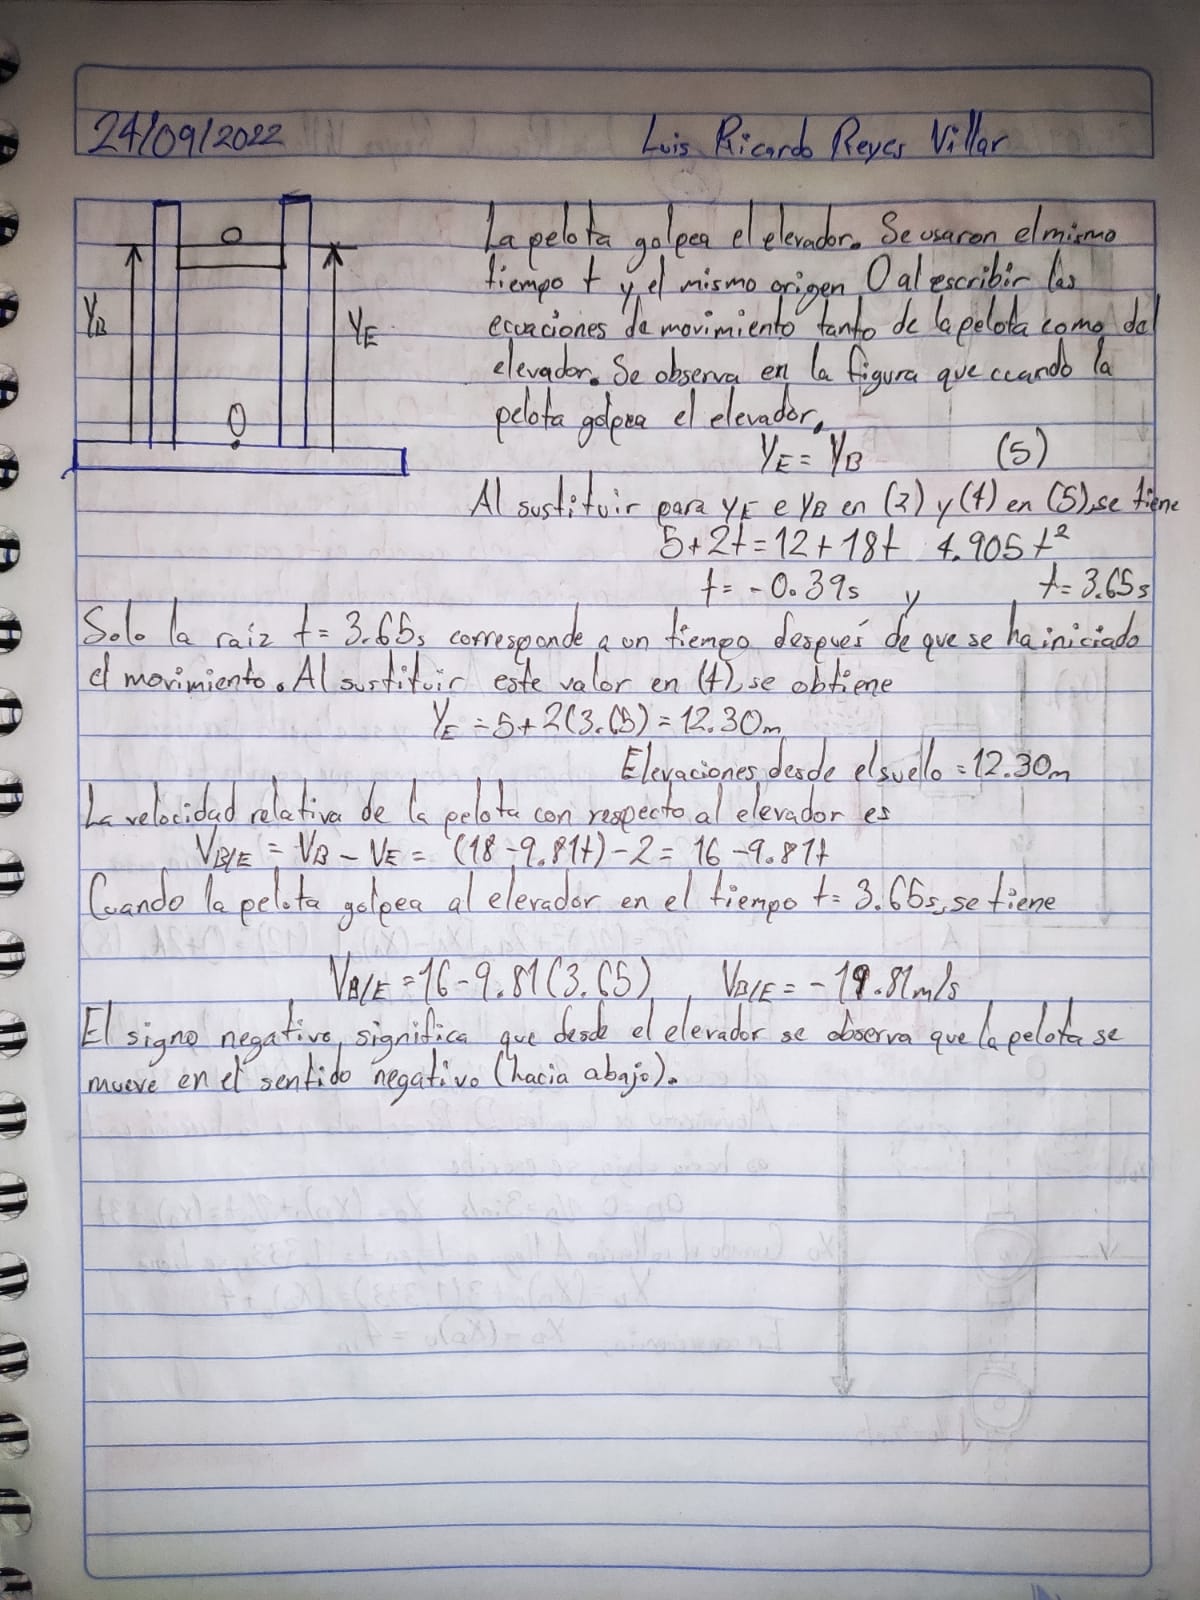 24/09/2022
Luis Ricardo Reyes Villar
La pelota golpea el elevador. Se usaron el mismo
tiempo t y el mismo origen O al escribir las
ecuaciones de movimiento tanto de la pelota como del
elevador. Se observa en la figura que cuando la
pelota golpea el elevador,
YB
YE
O
YE = YB (5)
Al sustituir para YE e YB en (2) y (4) en (5), se tiene
5+2t=12+18t 4.905t²
t=-0.39s y t=3.65s
Solo la raiz t=3.65s corresponde a un tiempo después de que se ha iniciado
el movimiento. Al sustituir este valor en (4), se obtiene
YE = 5+2(3.65)=12.30m
Elevaciones desde el suello = 12.30m
La velocidad relativa de la pelota con respecto al elevador es
VB/E = VB - VE = (18-9.81t)-2=16-9.81t
Cuando la pelota golpea al elevador en el tiempo t=3.65s, se tiene
VB/E =16-9.81(3.65) VB/E = -19.81m/s
El signo negativo, significa que desde el elevador se observa que la pelota se
mueve en el sentido negativo (hacia abajo).